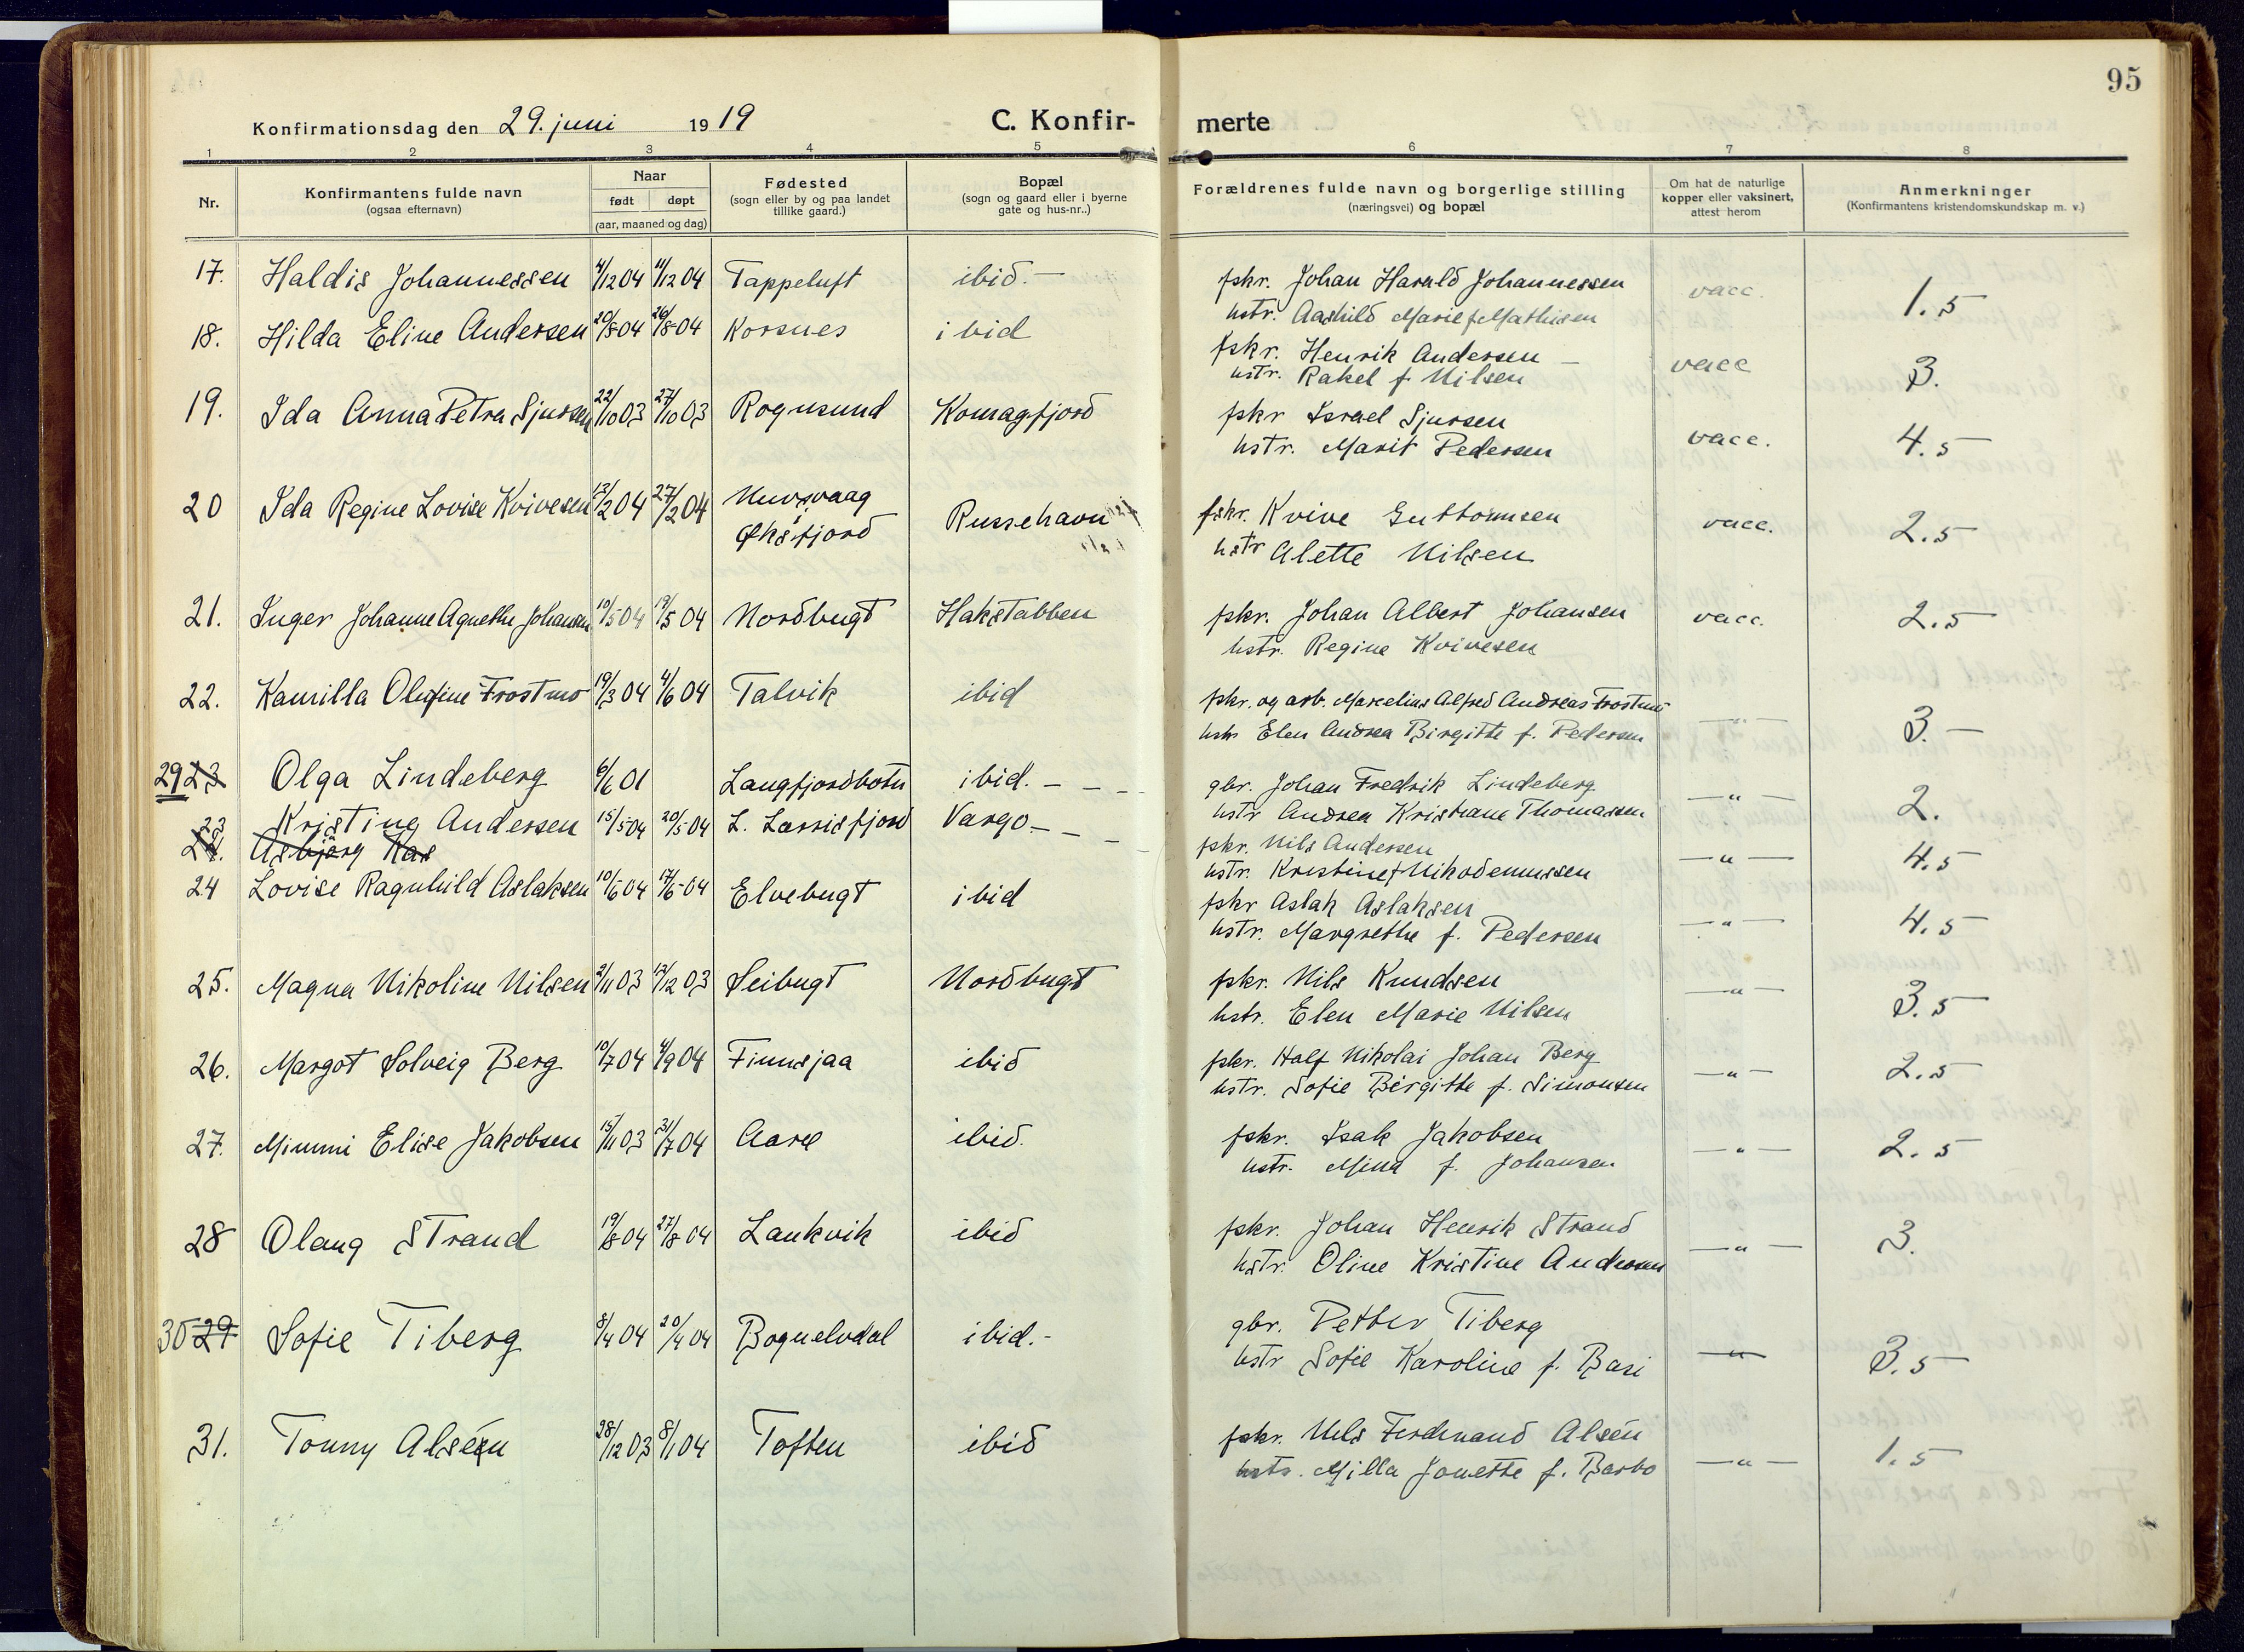 95
Konfirmationsdag den 29. juni 1919
C. Konfir-
merte
1 2 3 4 5 6 7 8
Nr.
Konfirmantens fulde navn
(ogsaa efternavn)
Naar
født døpt
(aar, maaned og dag)
Fødested
(sogn eller by og paa landet
tillike gaard.)
Bopæl
(sogn og gaard eller i byerne
gate og hus-nr..)
Forældrenes fulde navn og borgerlige stilling
(næringsvei) og bopæl
Om hat de naturlige
kopper eller vaksinert,
attest herom
Anmerkninger
(Konfirmantens kristendomskundskap m. v.)
17. Haldis Johannessen 4/12 04 11/12 04 Tappeluft ibid. — fskr. Johan Harald Johannessen vacc. 1.5
hstr. Aashild Marie f Mathisen
18. Hilda Eline Andersen 20/8 04 26/8 04 Korsnes ibid fskr. Henrik Andersen — vacc 3.
hstr. Rakel f Nilsen
19. Ida Anna Petra Sjursen 22/10 03 27/10 03 Rognsund Komagfjord fskr Israel Sjursen vacc. 4.5
hstr. Marit Pedersen
20 Ida Regine Lovise Kvivesen 13/2 04 27/2 04 Nuvsvaag Russehavn fskr. Kvive Guttormsen vacc. 2.5
i Øksfjord hstr Alette Nilsen
21. Inger Johanne Agnethe Johansen 10/5 04 19/5 04 Nordbugt Hakstabben fskr. Johan Albert Johansen vacc. 2.5
hstr. Regine Kvivesen
22. Kamilla Olufine Trostmo 19/3 04 4/6 04 Talvik ibid fskr. og arb. Marcelius Alfred Andreas Trostmo — " — 3. —
hstr Elen Andrea Birgitte f. Pedersen
29 23 Olga Lindeberg 6/6 01 Langfjordbotn ibid. — gbr. Johan Fredrik Lindeberg — " — 2.
hstr Andrea Kristiane Thomassen
23 Kristine Andersen 15/5 04 20/5 04 L. Lerrisfjord Vargo — fskr. Nils Andersen — " — 4.5
24. Asbjørg Kas
hstr. Kristine f Nikodemussen
24 Lovise Ragnhild Aslaksen 10/6 04 17/6 04 Elvebugt ibid fskr Aslak Aslaksen — " — 4.5
hstr. Margrethe f. Pedersen
25. Magna Nikoline Nilsen 2/11 03 12/12 03 Seibugt Nordbugt fskr. Nils Knudsen — " — 3.5
hstr. Elen Marie Nilsen
26. Margot Solveig Berg 10/7 04 4/9 04 Finnsjaa ibid fskr. Half Nikolai Johan Berg — " — 2.5
hstr. Sofie Birgitte f. Simonsen
27. Mimmi Elise Jakobsen 15/11 03 31/7 04 Aarø ibid. fskr. Isak Jakobsen — " — 2.5
hstr. Mina f. Johansen
28 Olaug Strand 19/8 04 27/8 04 Lankvik ibid fskr. Johan Henrik Strand — " — 3.
hstr. Oline Kristine Andersen
30 29 Sofie Tiberg 8/4 04 20/4 04 Bognelvdal ibid. - gbr. Petter Tiberg — " — 3.5
hstr Sofie Karoline f. Basi
31. Tonny Alsén 28/12 03 8/1 04 Toften ibid fskr. Nils Ferdinand Alsén — " — 1.5
hstr. Milla Jonette f. Barbo